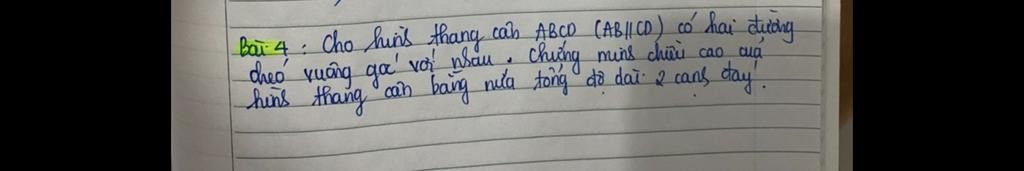 Bài 4 : Cho hình thang cân ABCD (AB//CD) có hai đường
chéo vuông góc với nhau. Chứng minh chiều cao của
hình thang cân bằng nửa tổng độ dài 2 cạnh đáy.